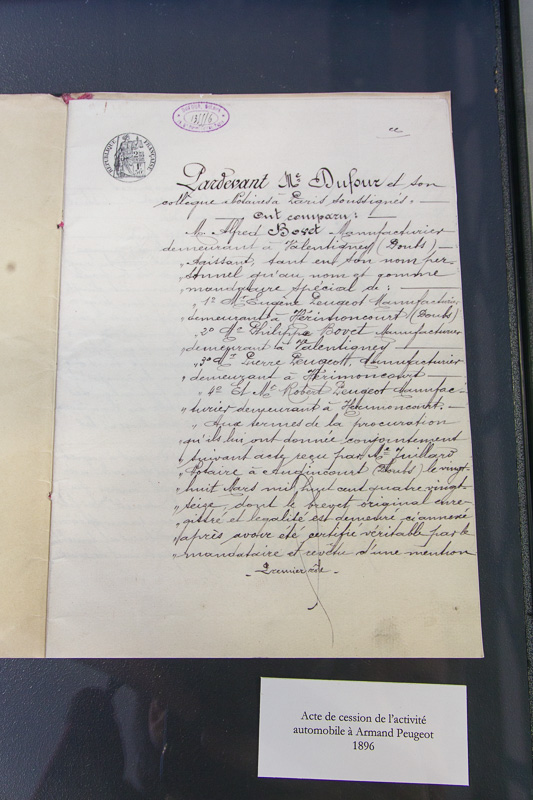 RÉPUBLIQUE FRANÇAISE
Pardevant Me Dufour et son
collègue Notaires à Paris soussignés.
ont comparu :
M. Alfred Bovet Manufacturier
demeurant à Valentigney (Doubs)
Agissant, tant en son nom per-
sonnel qu'au nom et comme
mandataire spécial de :
1o Mr Eugène Peugeot Manufacturier
demeurant à Hérimoncourt (Doubs)
2o Mr Philippe Bovet Manufacturier
demeurant à Valentigney
3o Mr Pierre Peugeot, Manufacturier
demeurant à Hérimoncourt
4o Et Mr Robert Peugeot Manufac-
turier demeurant à Hérimoncourt.
Aux termes de la procuration
qu'ils lui ont donnée conjointement
suivant acte reçu par Me Juillard
Notaire à Audincourt (Doubs) le vingt
huit Mars mil huit cent quatre vingt
seize, dont le brevet original enre-
gistré et légalisé est demeuré ci annexé
après avoir été certifié véritable par le
mandataire et revêtu d'une mention
Premier rôle
Acte de cession de l'activité
automobile à Armand Peugeot
1896